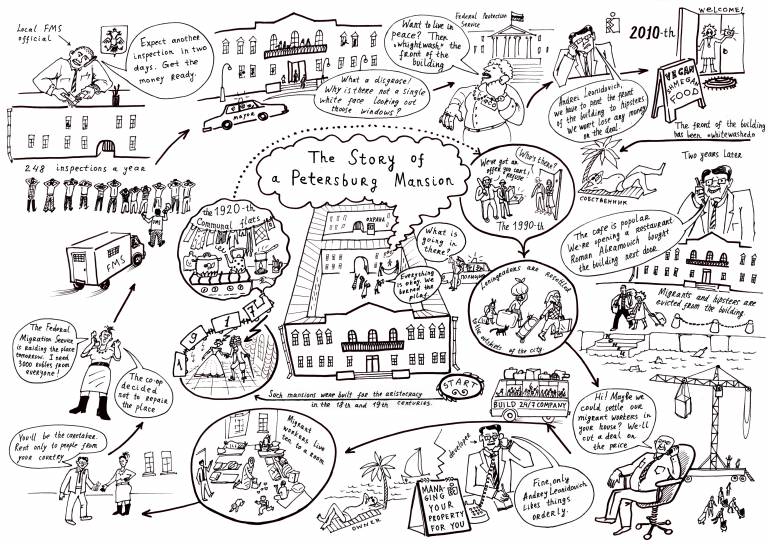 Local FMS
official
Expect another
inspection in two
days. Get the
money ready.
248 inspections a year
FMS
FMS
major
What a disgrace!
Why is there not a single
white face looking out
those windows?
Want to live in
peace? Then
"whightwash" the
front of the
building
Federal Protection
Service
2010-th
Andrei Leonidovich,
we have to rent the front
of the building to hipsters.
We wont lose any money
on the deal.
WELCOME!
VEGAN
SHMEGAN
FOOD
The front of the building
has been «whitewashed»
СОБСТВЕННИК
Two years later
The cafe is popular
We're opening a restaurant
Roman Abramovich bought
the building next door.
Migrants and hipsters are
evicted from the building.
The Story of
a Petersburg Mansion
the 1920-th
Communal flats
1917
ОХРАНА
What is
going in
there?
Everything
is okay. We
burned the
pilaf.
ПОЛИЦИЯ
We've got an
offer you cant
refuse
Who's there?
The 1990-th
Leningraders are resettled
to the outskirts of the city
START
Such mansions were built for the aristocracy
in the 18th and 19th centuries.
BUILD 24/7 COMPANY
Hi! Maybe we
could settle our
migrant workers in
your house? We'll
cut a deal on
the price
developer
Fine, only
Andrey Leonidovich
likes things
orderly.
MANA-
GING
YOUR
PROPERTY
FOR YOU
OWNER
Migrant
workers live
ten to a room
You'll be the caretaker.
Rent only to people from
your country
The co-op
decided
not to repair
the place
The Federal
Migration Service
is raiding the place
tomorrow. I need
3000 rubles from
everyone!